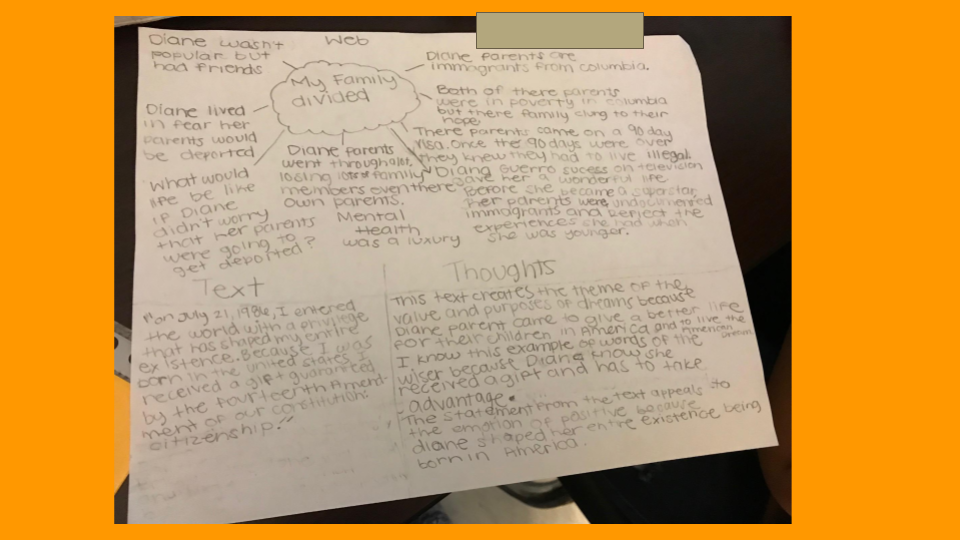 Web
Diane wasn't
popular but
had friends
My Family
divided
Diane parents are
immagrants from columbia.
Both of there parents
were in poverty in columbia
but there family clung to their
hope
Diane lived
in fear her
parents would
be deported
There parents came on a 90 day
visa. Once the 90 days were over
they knew they had to live illegal.
Diane parents
went through alot,
losing family
members even there
own parents.
Diang Guerro sucess on television
gave her a wonderful life
Before she became a superstar
her parents were undocumented
immagrants and the
experiences she had when
she was younger.
What would
life be like
if Diane
didn't worry
that her parents
were going to
get deported?
Mental
Health
was a luxury
Text
"on July 21, 1986, I entered
the world with a privilege
that has shaped my entire
existence. Because I was
born in the united states I
received a gift guaranteed
by the fourteenth Amend-
ment of our constitution:
citizenship."
Thoughts
This text creates the theme of the
value and purposes of dreams because
Diane parent came to give a better life
for their children in America and to live the
American
Dream.
I know this example of words of the
wiser because Diane know she
received a gift and has to take
advantage.
- The statement from the text appeals to
the emotion of positive because
diane shaped her entire existence being
born in America.